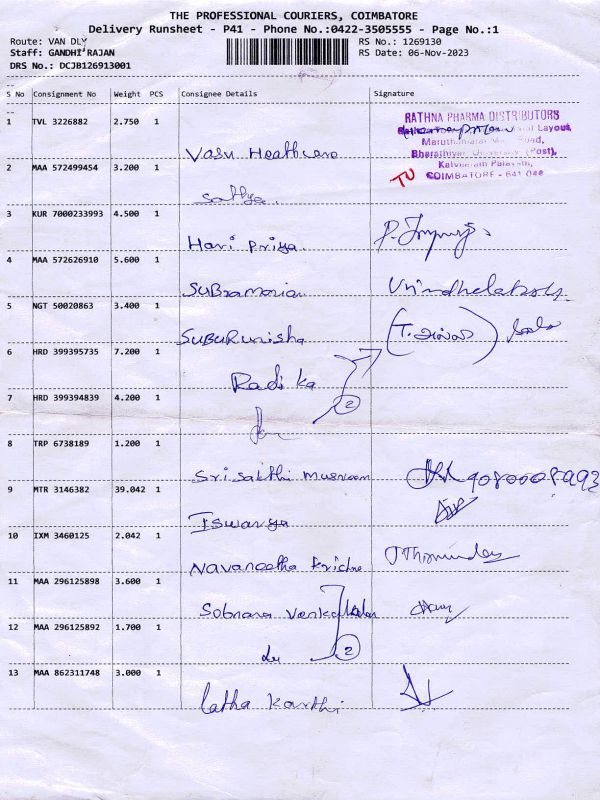 THE PROFESSIONAL COURIERS, COIMBATORE
Delivery Runsheet - P41 - Phone No.:0422-3505555 - Page No.:1
Route: VAN DLY RS No.: 1269130
Staff: GANDHI RAJAN RS Date: 06-Nov-2023
DRS No.: DCJB126913001
S No Consignment No Weight PCS Consignee Details Signature
1 TVL 3226882 2.750 1 Vasu Healthcare
RATHNA PHARMA DISTRIBUTORS
Layout,
Road,
Bharathiyar University (Post),
Kalveeram Palayam,
COIMBATORE - 641 046
TU
2 MAA 572499454 3.200 1 Sathya
3 KUR 7000233993 4.500 1 Hari Priya
4 MAA 572626910 5.600 1 Subramanian
5 NGT 50020863 3.400 1 SUBURunisha
6 HRD 399395735 7.200 1 Radika
7 HRD 399394839 4.200 1 2
8 TRP 6738189 1.200 1 Sri Sakthi Musroom 9080008993
9 MTR 3146382 39.042 1 Iswarya
10 IXM 3460125 2.042 1 Navaneetha Krishna
11 MAA 296125898 3.600 1
12 MAA 296125892 1.700 1 2
13 MAA 862311748 3.000 1 latha Karthi